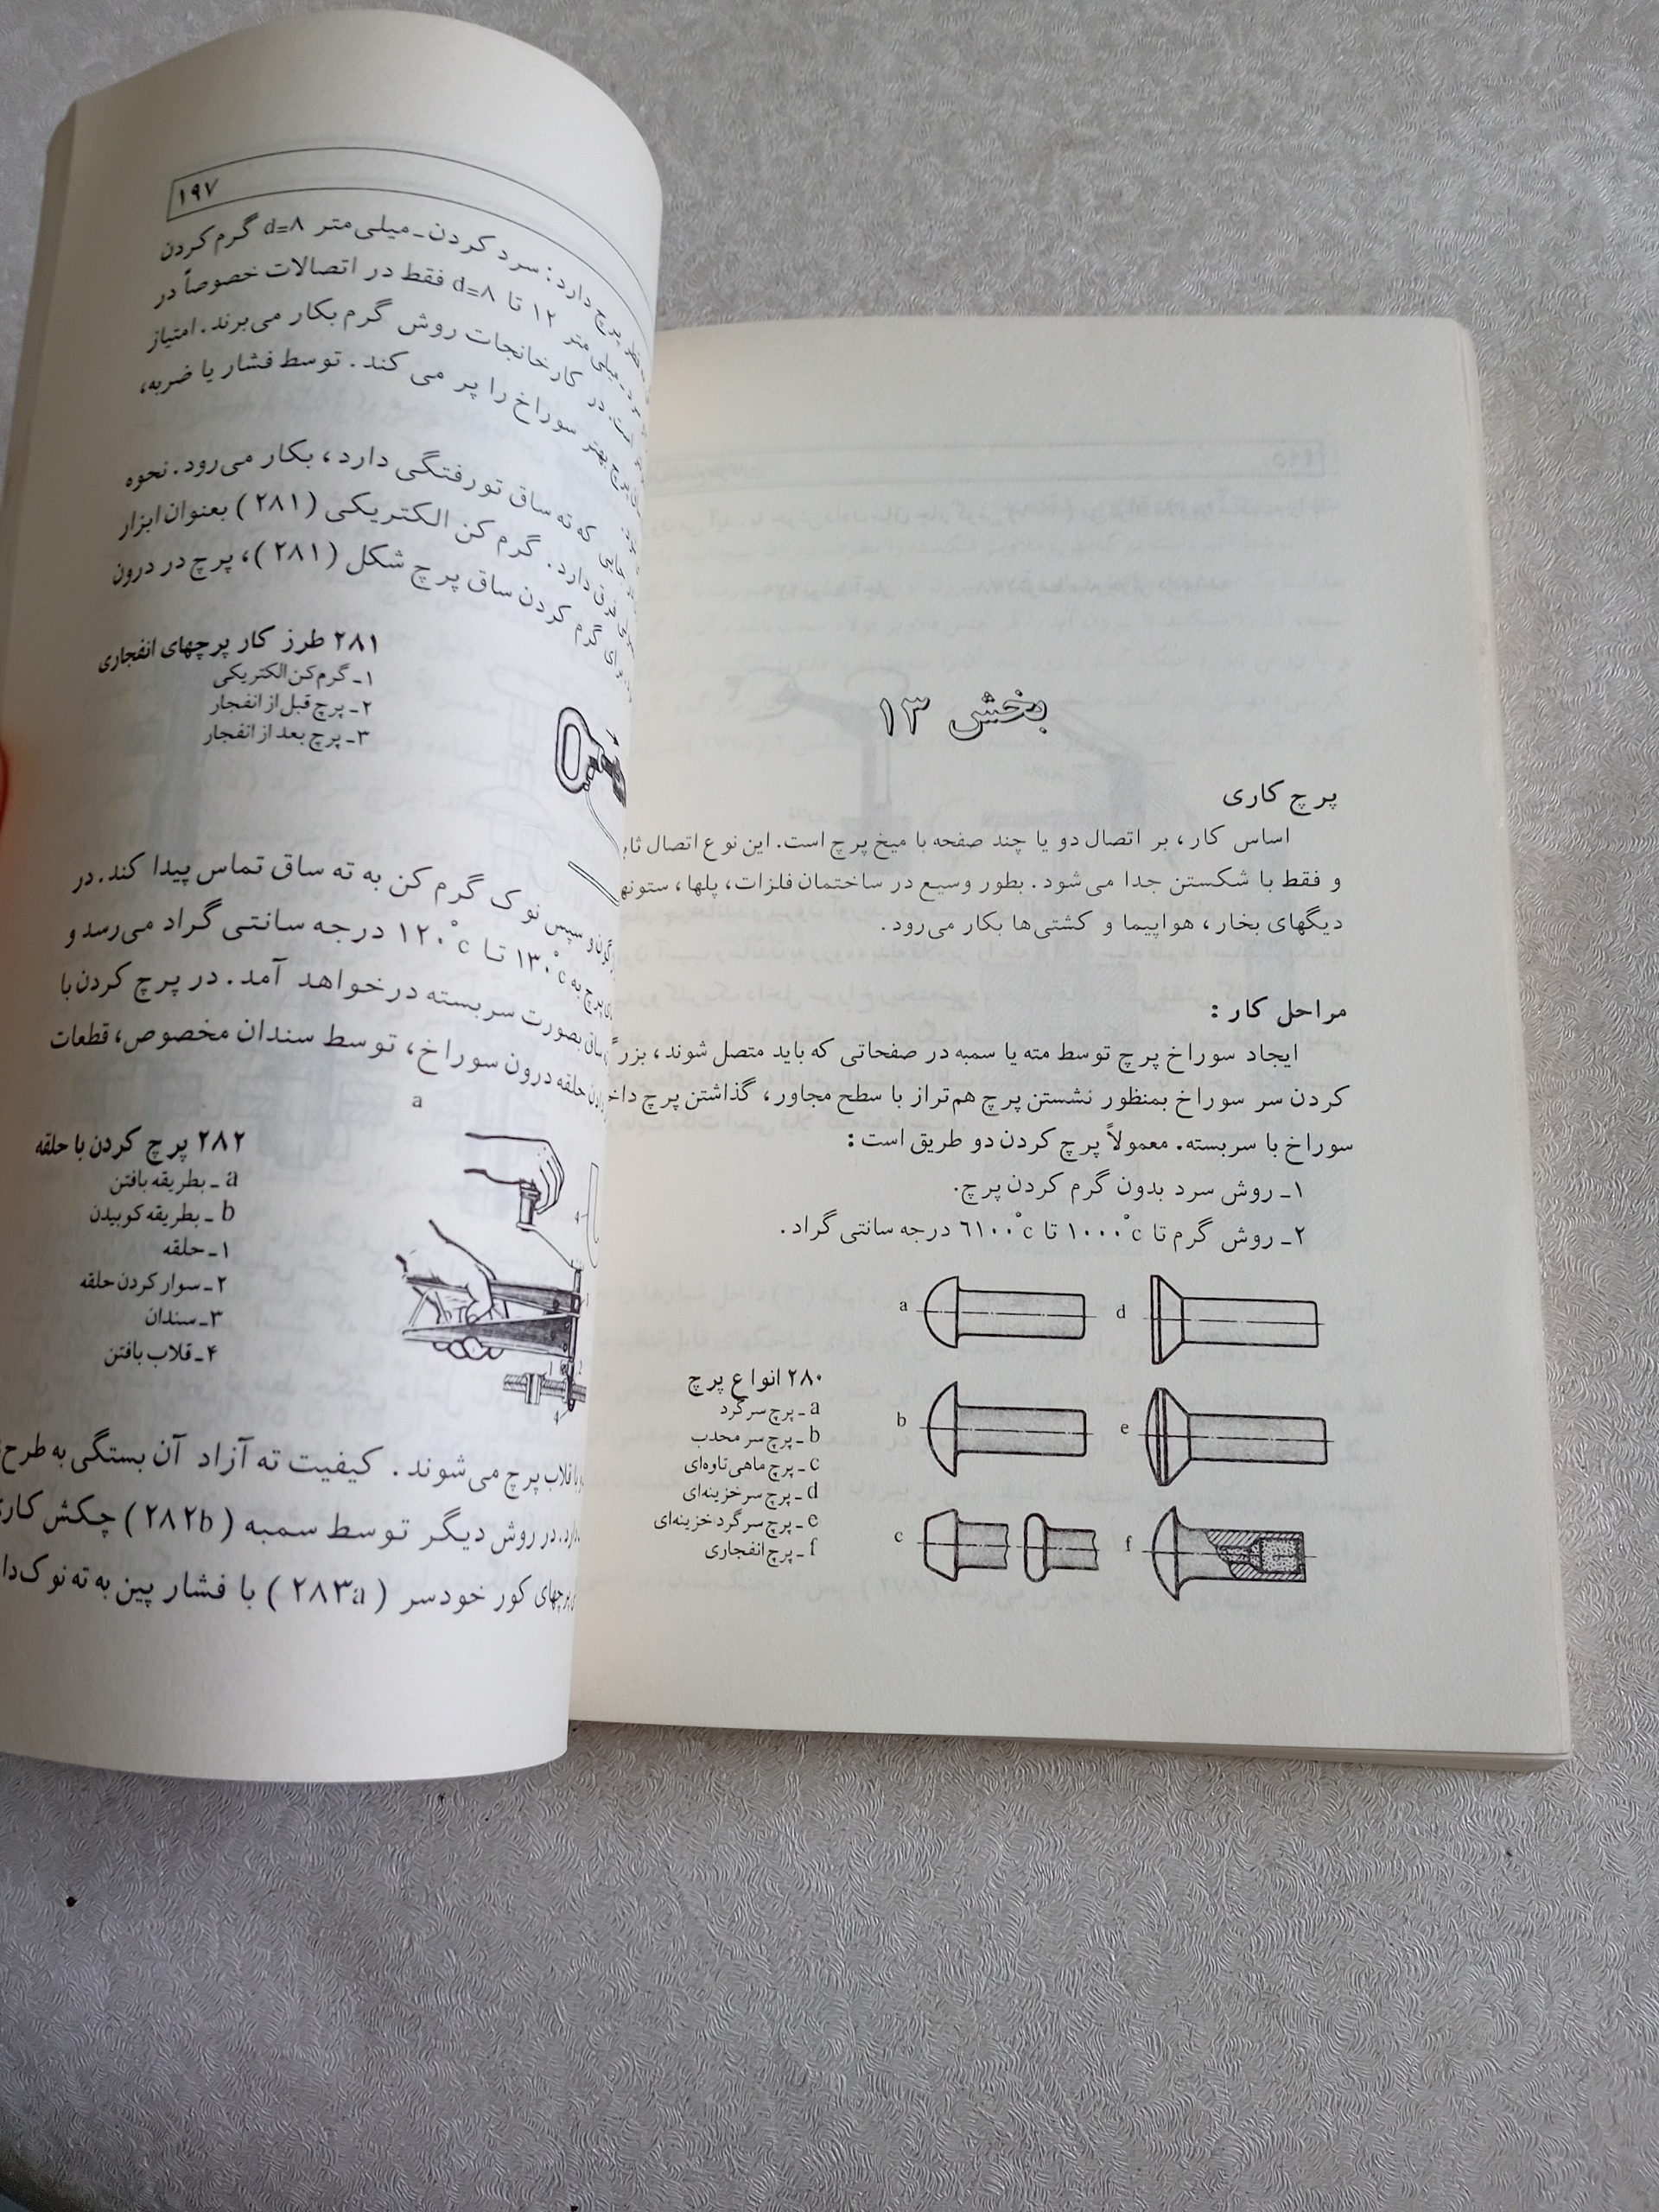 بخش ۱۳
پرچ کاری
اساس کار، بر اتصال دو یا چند صفحه با میخ پرچ است. این نوع اتصال
و فقط با شکستن جدا می‌شود. بطور وسیع در ساختمان فلزات، پلها،
دیگهای بخار، هواپیما و کشتی‌ها بکار می‌رود.
مراحل کار:
ایجاد سوراخ پرچ توسط مته یا سمبه در صفحاتی که باید متصل شوند،
کردن سر سوراخ بمنظور نشستن پرچ هم‌تراز با سطح مجاور، گذاشتن پرچ
سوراخ با سربسته. معمولاً پرچ کردن دو طریق است:
۱ـ روش سرد بدون گرم کردن پرچ.
۲ـ روش گرم تا ۱۰۰۰°c تا ٦۱۰۰°c درجه سانتی گراد.
a
d
b
e
c
f
۲۸۰ انواع پرچ
a ـ پرچ سر گرد
b ـ پرچ سر محدب
c ـ پرچ ماهی تاوه‌ای
d ـ پرچ سر خزینه‌ای
e ـ پرچ سر گرد خزینه‌ای
f ـ پرچ انفجاری
۱۹۷
پرچ دارد: سرد کردن ـ میلی‌متر d=۸ گرم کردن
میلی‌متر ۱۲ تا d=۸ فقط در اتصالات خصوصاً در
است. در کارخانجات روش گرم بکار می‌برند. امتیاز
پرچ بهتر سوراخ را پر می کند. توسط فشار یا ضربه،
که ته ساق تورفتگی دارد، بکار می‌رود. نحوه
دارد. گرم کن الکتریکی (۲۸۱) بعنوان ابزار
برای گرم کردن ساق پرچ شکل (۲۸۱)، پرچ در درون
۲۸۱ طرز کار پرچهای انفجاری
۱ـ گرم‌کن الکتریکی
۲ـ پرچ قبل از انفجار
۳ـ پرچ بعد از انفجار
و سپس نوک گرم کن به ته ساق تماس پیدا کند. در
پرچ به ۱۳۰°c تا ۱۲۰°c درجه سانتی گراد می‌رسد و
بصورت سربسته درخواهد آمد. در پرچ کردن با
حلقه درون سوراخ، توسط سندان مخصوص، قطعات
a
۲۸۲ پرچ کردن با حلقه
a ـ بطریقه بافتن
b ـ بطریقه کوبیدن
۱ـ حلقه
۲ـ سوار کردن حلقه
۳ـ سندان
۴ـ قلاب بافتن
با قلاب پرچ می‌شوند. کیفیت ته آزاد آن بستگی به طرح
دارد. در روش دیگر توسط سمبه (۲۸۲b) چکش
پرچهای کور خودسر (۲۸۳a) با فشار پین به ته نوک